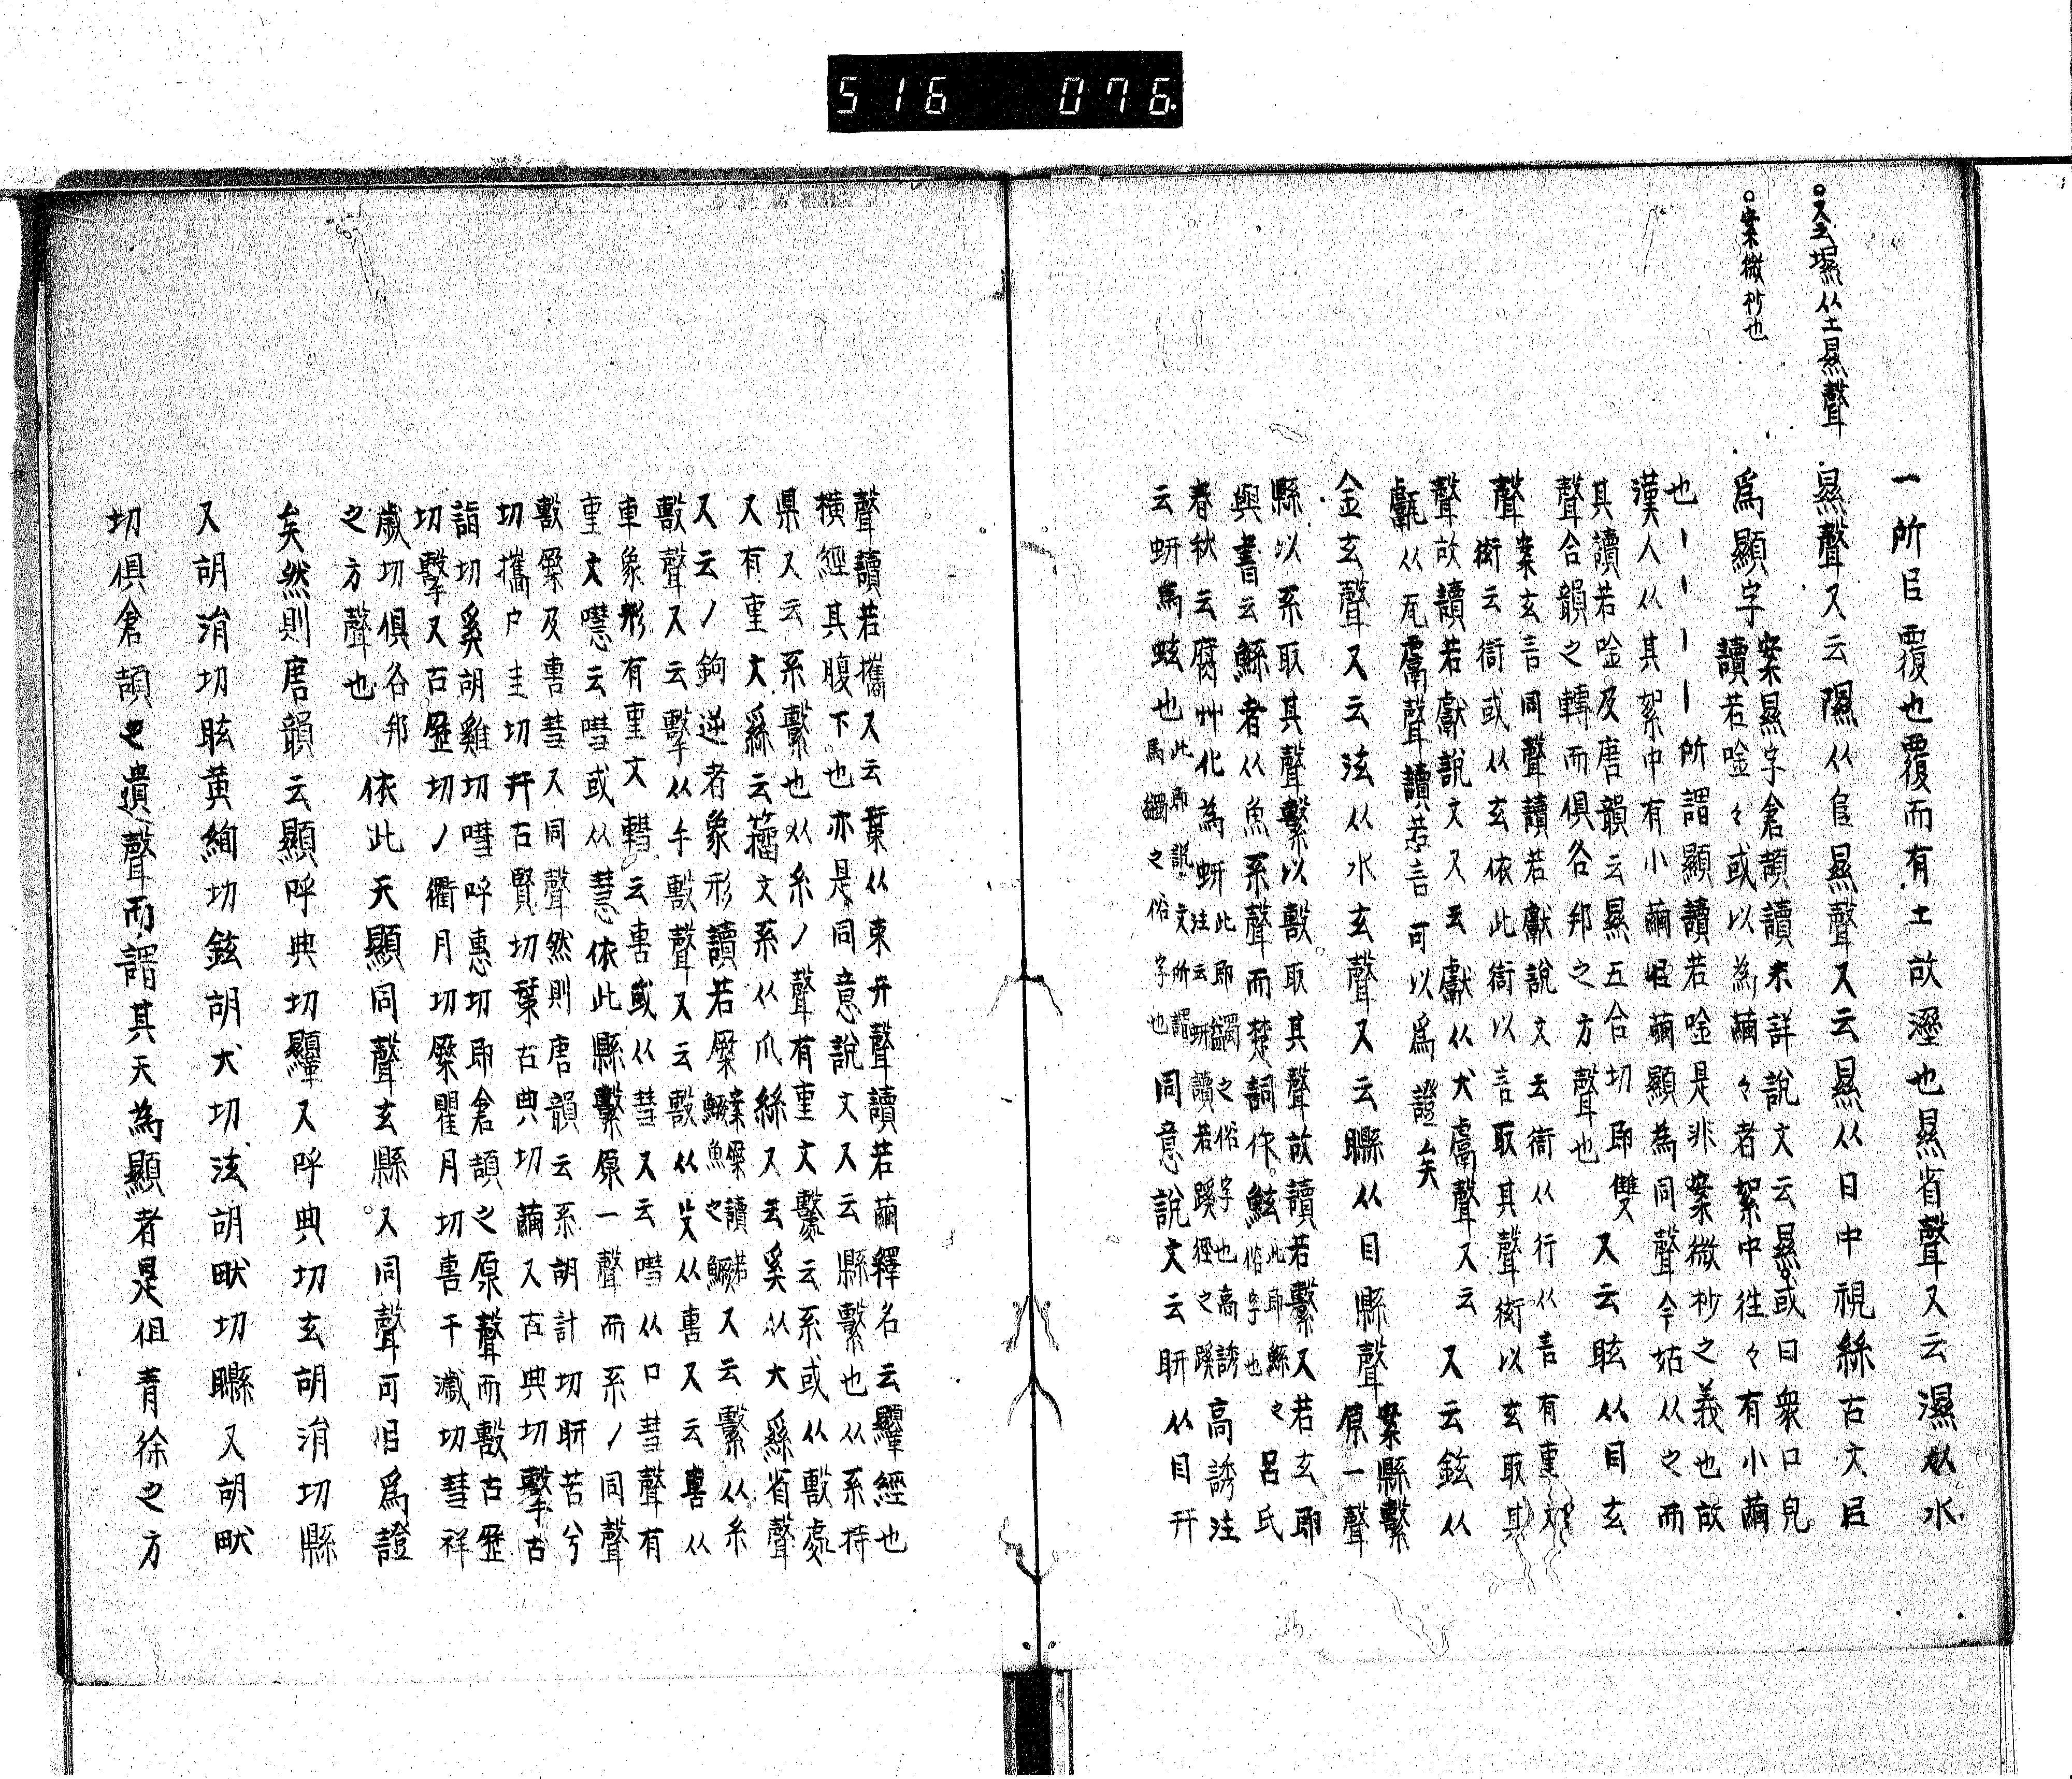 516 076
○又云㙷从土㬎聲
○案微杪也
一所㠯覆也覆而有土故溼也㬎省聲又云濕从水
㬎聲又云隰从𨸏㬎聲又云㬎从日中視絲古文㠯
爲顯字
案㬎字倉頡讀未詳說文云㬎或曰衆口皃
讀若唫々或以為繭々者絮中往々有小繭
也丨丨丨丨所謂顯讀若唫是非案微杪之義也故
漢人从其絮中有小繭㠯繭顯為同聲今姑从之而
其讀若唫及唐韻云㬎五合切即雙
聲合韻之轉而俱各邦之方聲也
又云眩从目玄
聲案玄言同聲讀若獻說文云衙从行从言有重文
衒云衙或从玄依此衙以言取其聲衒以玄取其
聲故讀若獻說文又云獻从犬鬳聲又云
甗从瓦鬳聲讀若言可以爲證矣
又云鉉从
金玄聲又云泫从水玄聲又云矎从目縣聲
案縣繫
原一聲
縣以系取其聲繫以毄取其聲故讀若繫又若玄即
與書云鯀者从魚系聲而楚詞作鮌俗字也此即鯀之
呂氏
春秋云腐艸化為蚈此即蠲之俗字也高誘
注云蚈讀若蹊徑之蹊
高誘注
云蚈馬蚿也此即說文所謂
馬蠲之俗字也
同意說文云䀘从目幵
聲讀若攜又云䅌从束幵聲讀若繭釋名云韅經也
橫經其腹下也亦是同意說文又云縣繫也从系持
県又云系繫也从糸丿聲有重文𣪠云系或从毄處
又有重文𦃟云籒文系从爪絲又云奚从大𦃟省聲
又云丿鉤逆者象形讀若橜
案橜讀若
鱖魚之鱖
又云繫从糸
毄聲又云擊从手毄聲又云毄从殳从軎又云軎从
車象形有重文轊云軎或从彗又云嘒从口彗聲有
重文嚖云嘒或从慧依此縣繫原一聲而系丿同聲
毄橜及軎彗又同聲然則唐韻云系胡計切䀘苦兮
切攜户圭切幵古賢切䅌古典切繭又古典切擊古
詣切奚胡雞切嘒呼惠切即倉頡之原聲而毄古歷
切擊又古歷切丿衢月切橜瞿月切軎于濊切彗祥
歲切俱各邦
之方聲也
依此天顯同聲玄縣又同聲可㠯爲證
矣然則唐韻云顯呼典切韅又呼典切玄胡涓切縣
又胡涓切眩黄絢切鉉胡犬切泫胡畎切矎又胡畎
切俱倉頡之遺聲而謂其天為顯者是但青徐之方